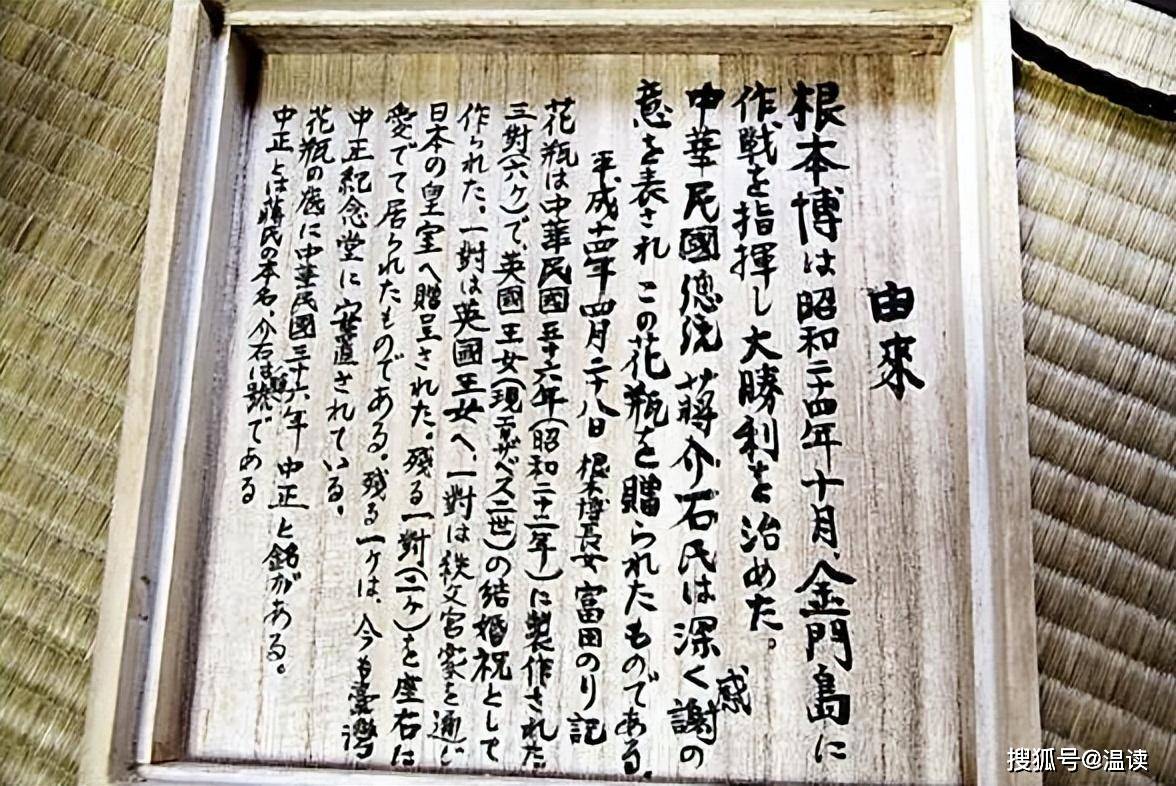 由來
根本博は昭和二十四年十月、金門島に
作戦を指揮し大勝利を治めた。
中華民國總統 蔣介石氏は深く感謝の
意を表されこの花瓶を贈られたものである。
平成十四年四月二十八日 根本博長女 富田のり 記
花瓶は中華民國三十六年(昭和二十二年)に製作された
三對(六ヶ)で、英國王女(現エリザベス二世)の結婚祝として
作られた。一對は英國王女へ、一對は秩父宮家を通じ
日本の皇室へ贈呈された。残る一對(二ヶ)を座右に
愛でて居られたものである。残る一ヶは、今も臺灣
中正紀念堂に安置されている。
花瓶の底に中華民國三十六年 中正と銘がある。
中正とは蔣氏の本名。介石は號である
搜狐号@温读